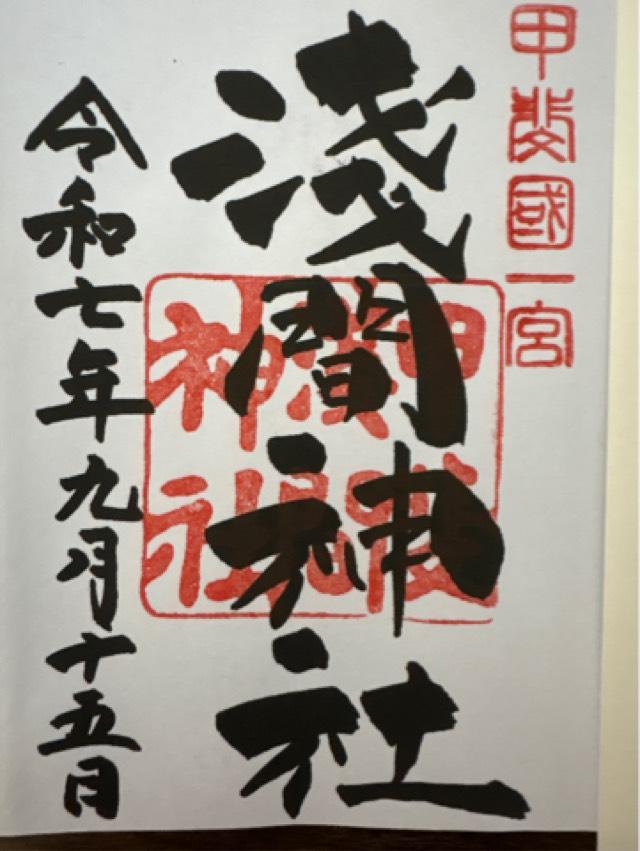 甲斐國一宮
淺間神社
神社
令和七年九月十五日